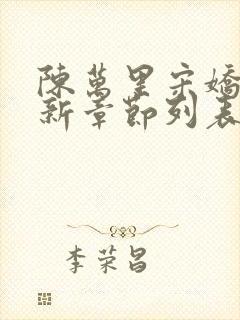 陳萬里宋嬌
新章節列表
李荣昌